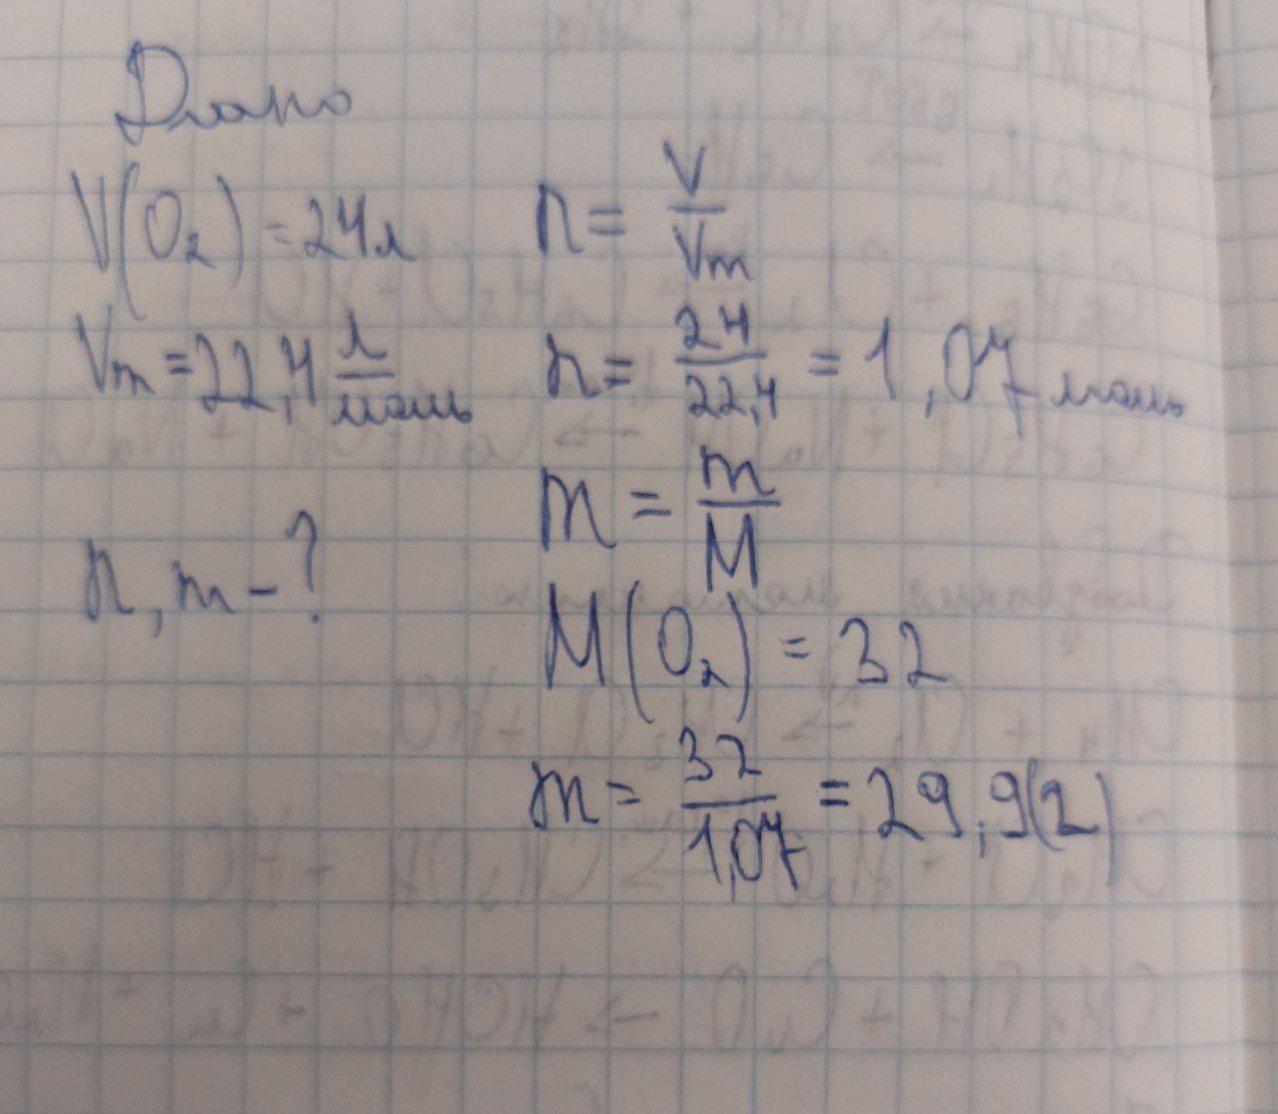 Дано
V(O₂) = 24 л
Vm = 22,4 л/моль
n, m - ?
n = V/Vm
n = 24/22,4 = 1,07 моль
m = m/M
M(O₂) = 32
m = 32/1,07 = 29,9(2)